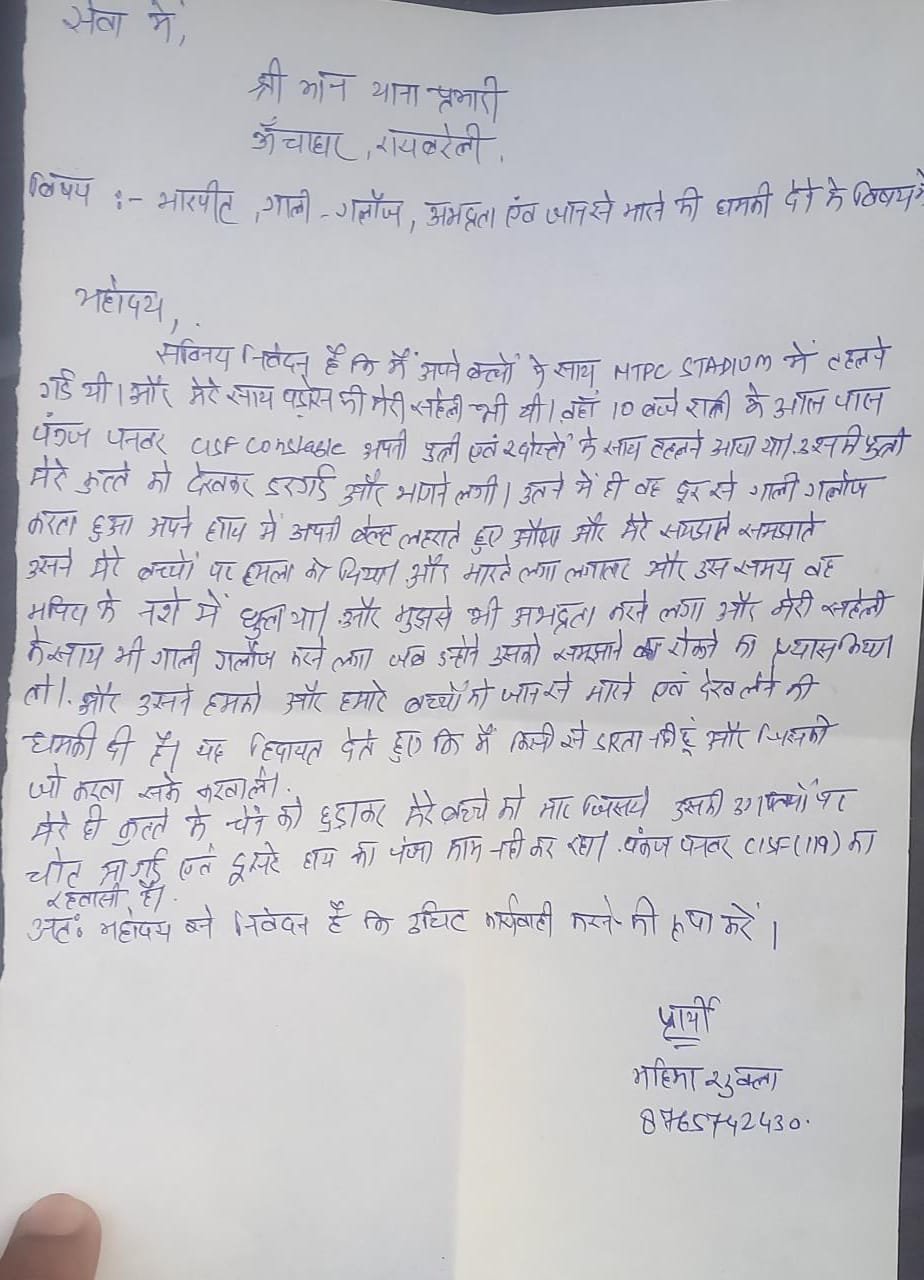 सेवा में,
श्री मान थाना प्रभारी
ऊँचाहार, रायबरेली.
विषय :- मारपीट, गाली-गलौज, अभद्रता एंव जान से मारने की धमकी देने के विषय में
महोदय,
सविनय निवेदन है कि मैं अपने बच्चों के साथ NTPC STADIUM में टहलने
गई थी। और मेरे साथ पड़ोस की मेरी सहेली भी थी। वहाँ 10 बजे रात्री के आस पास
पंकज पनवर CISF Constable अपनी पुत्री एवं दोस्तों के साथ टहलने आया था। उसकी पुत्री
मेरे कुत्ते को देखकर डर गई और भागने लगी। उतने में ही वह दूर से गाली गलौज
करता हुआ अपने हाथ में अपनी बेल्ट लहराते हुए आया और मेरे समझाते समझाते
उसने मेरे बच्चों पर हमला कर दिया। और मारने लगा लगातार और उस समय वह
मदिरा के नशे में धुत था। और मुझसे भी अभद्रता करने लगा और मेरी सहेली
के साथ भी गाली गलौज करने लगा जब उन्होंने उसको समझाने रोकने का प्रयास किया
तो। और उसने हमको और हमारे बच्चों को जान से मारने एवं देख लेने की
धमकी दी है। यह हिदायत देते हुए कि मैं किसी से डरता नही हूं और जिसको
जो करता सके करवाले।
मेरे ही कुत्ते के चेन को छुड़ाकर मेरे बच्चे को मार जिससे उसकी उंगलियों पर
चोट आ गई एवं दूसरे हाथ का पंजा काम नही कर रहा। पंकज पनवर CISF (119) का
रहवासी है।
अतः महोदय से निवेदन है कि उचित कार्यवाही करने की कृपा करें।
प्रार्थी
महिमा शुक्ला
8765742430.